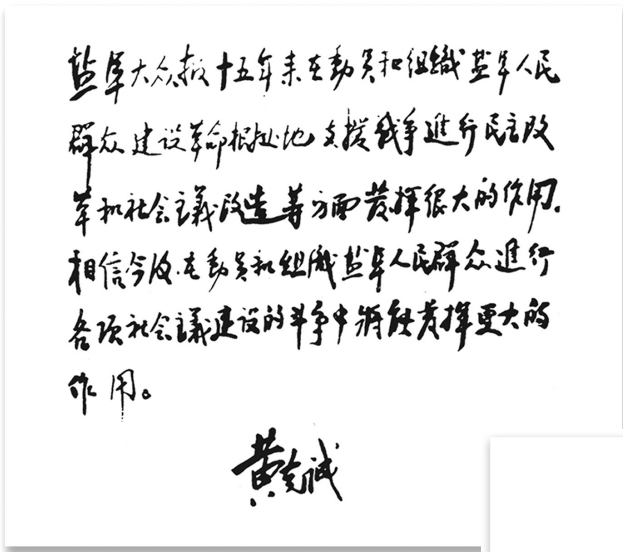 盐阜大众报十五年来在動員和组織盐阜人民
群众建设革命根据地支援战争進行民主改
革和社会主義改造等方面发挥很大的作用。
相信今后在動員和组織盐阜人民群众進行
各項社会主義建设的斗争中将能发挥更大的
作用。
黄克诚